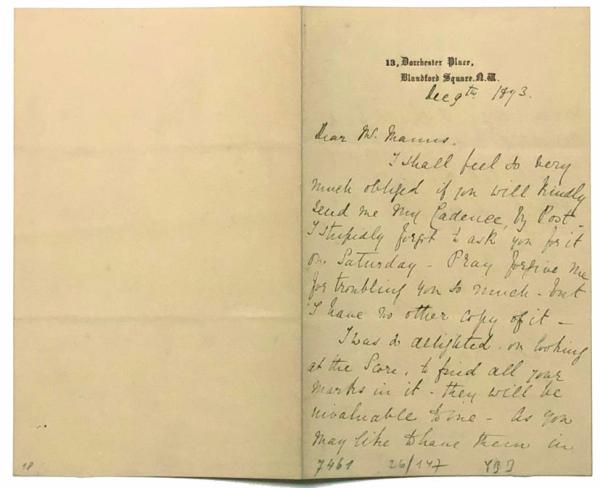 13, Dorchester Place,
Blandford Square. N.W.
Dec 9th 1873.
Dear Mr. Manns.
I shall feel so very
much obliged if you will kindly
send me my Cadence, by Post -
I stupidly forgot to ask you for it
on Saturday - Pray forgive me
for troubling you so much - but
I have no other copy of it -
I was so delighted on looking
at the Score, to find all your
marks in it - they will be
invaluable to me - As you
may like to have them in
7461 26/147
18